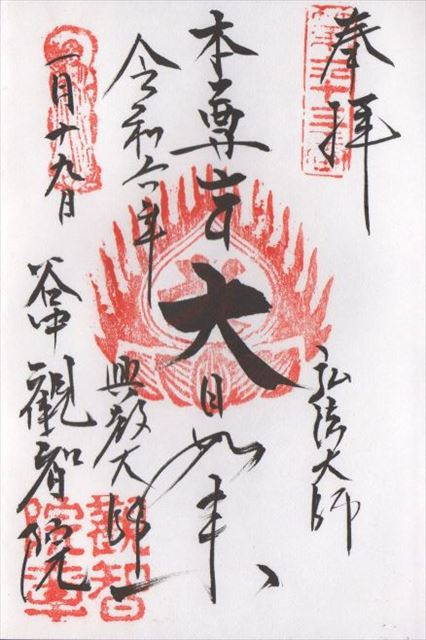 奉拝
弘法大師
本尊
大日如来
興教大師
令和六年
一月十九日
谷中
観智院
觀智